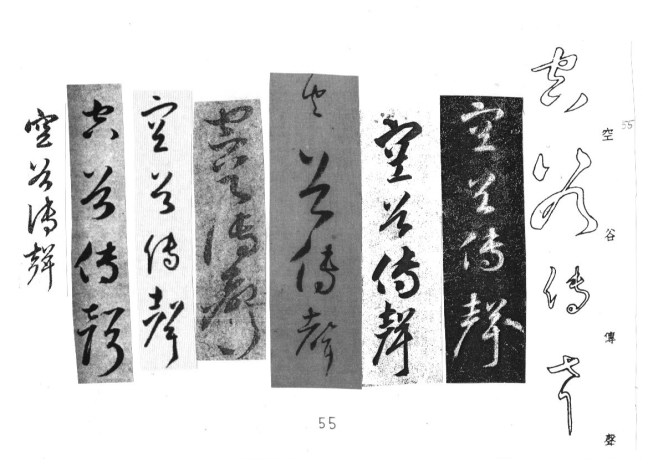 空谷傳聲
空谷傳聲
空谷傳聲
空谷傳聲
空谷傳聲
空谷傳聲
空谷傳聲
空谷傳聲
空谷傳聲
55
55